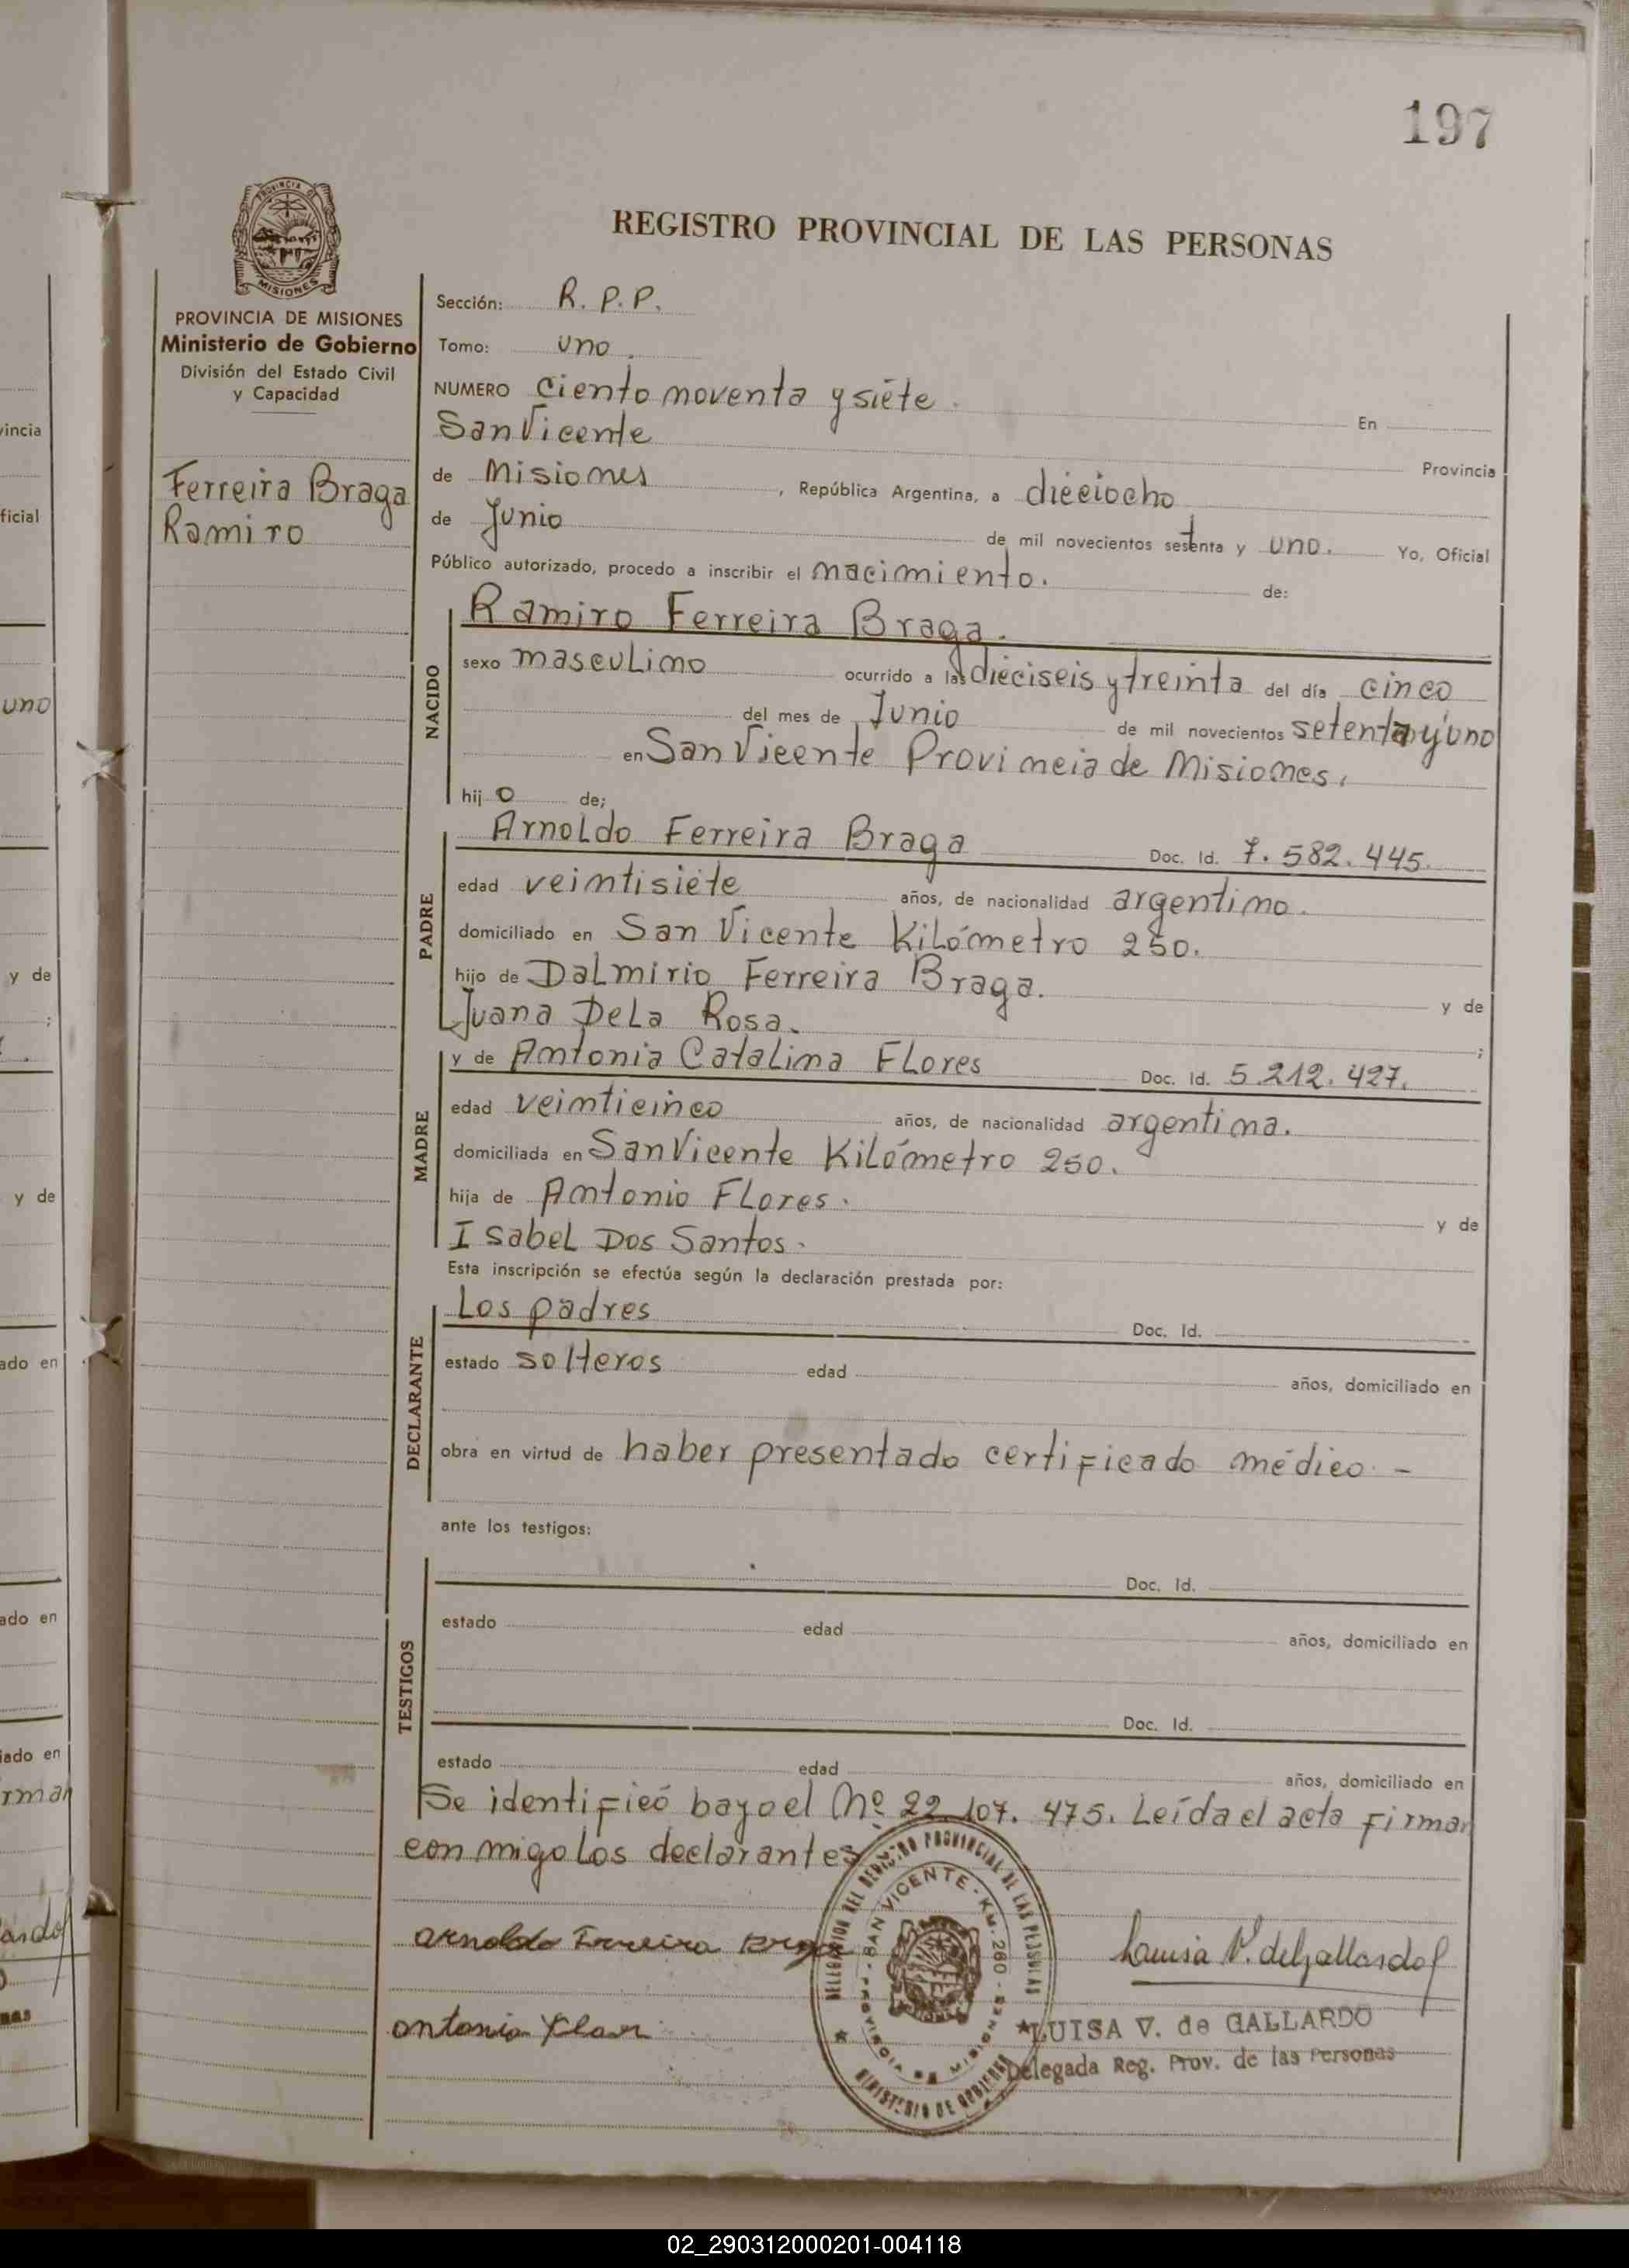 197
PROVINCIA DE
MISIONES
REGISTRO PROVINCIAL DE LAS PERSONAS
PROVINCIA DE MISIONES
Ministerio de Gobierno
División del Estado Civil
y Capacidad
Ferreira Braga
Ramiro
Sección: R. P. P.
Tomo: uno.
NUMERO Ciento noventa y siéte. En
San Vicente Provincia
de Misiones, República Argentina, a dieciocho
de Junio de mil novecientos sesenta y uno. Yo, Oficial
Público autorizado, procedo a inscribir el nacimiento. de:
NACIDO
Ramiro Ferreira Braga.
sexo masculino ocurrido a las diéciseis y treinta del día cinco
del mes de Junio de mil novecientos setenta y uno
en San Vicente Provincia de Misiones.
hijo de;
PADRE
Arnoldo Ferreira Braga Doc. Id. 7.582.445.
edad veintisiéte años, de nacionalidad argentino.
domiciliado en San Vicente Kilómetro 250.
hijo de Dalmirio Ferreira Braga. y de
Juana De La Rosa. ;
MADRE
y de Antonia Catalina Flores Doc. Id. 5.212.427.
edad veinticinco años, de nacionalidad argentina.
domiciliada en San Vicente Kilómetro 250.
hija de Antonio Flores. y de
Isabel Dos Santos.
Esta inscripción se efectúa según la declaración prestada por:
DECLARANTE
Los padres Doc. Id.
estado solteros edad años, domiciliado en
obra en virtud de haber presentado certificado médico. -
ante los testigos:
TESTIGOS
Doc. Id.
estado edad años, domiciliado en
Doc. Id.
estado edad años, domiciliado en
Se identificó bayo el Nº 22.107.475. Leída el acta firman
con migo los declarantes
Arnoldo Ferreira Braga
Antonia Flor
Luisa V. de Gallardo
LUISA V. de GALLARDO
Delegada Reg. Prov. de las Personas
DELEGACION DEL REGISTRO PROVINCIAL DE LAS PERSONAS
SAN VICENTE - KM. 260 - PROVINCIA DE MISIONES
MINISTERIO DE GOBIERNO
vincia
ficial
uno
y de
;
y de
ado en
ado en
iado en
rman
02_290312000201-004118